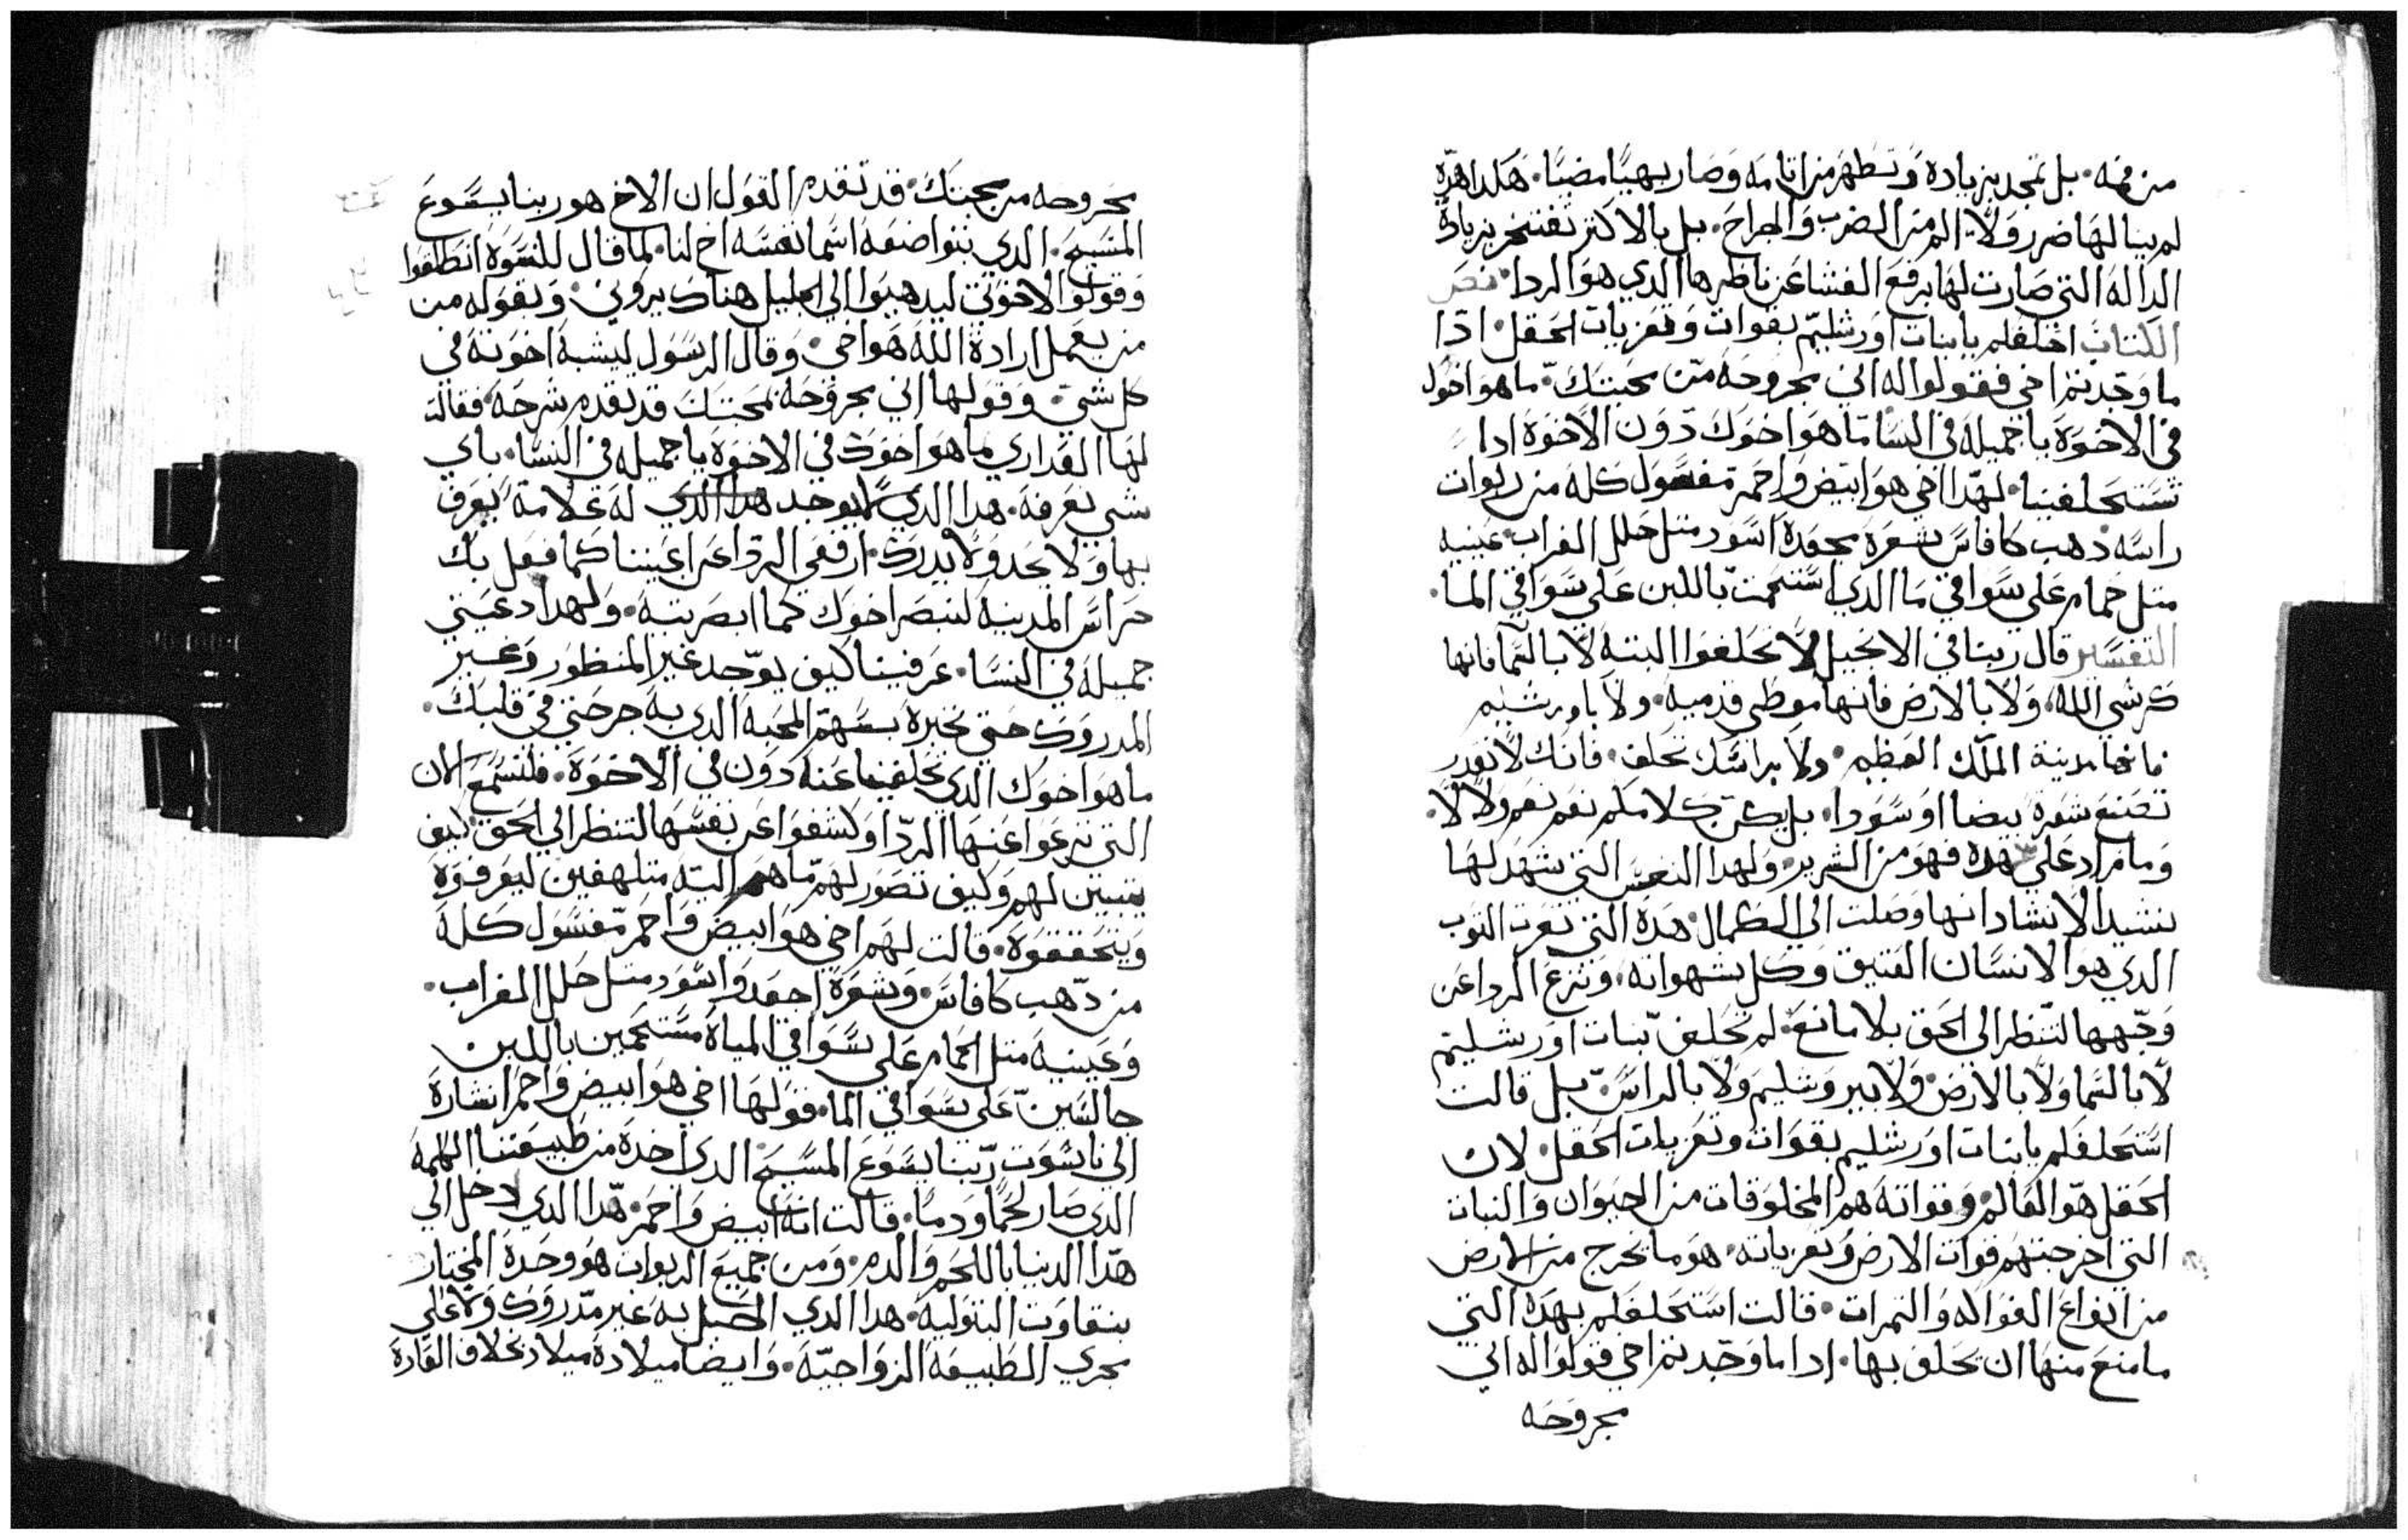 من فمه. بل تمجد بزيادة وتطهر من اتامه وصار بهيا مضيا. هكدا هده
لم ينالها ضرر ولا الم من الضرب والجراح. بل بالاكتر تفتخر بزيادة
الداله التي صارت لها برفع الغشا عن ناظرها الدي هو الردا. نص
الكتاب احلفلم يا بنات اورشليم بقوات وتعزيات الحقل. ادا
ما وجدتم اخي فقولوا له اني مجروحه من محبتك. ما هو اخوك
في الاخوة يا جميلة في النسا ما هو اخوك دون الاخوة ادا
تستحلفينا. لهدا اخي هو ابيض واحمر مغسول كله من ربوات
راسه دهب كافاس شعره مجعده اسود متل حلل الغراب. عينيه
متل حمام علي سواقي ما الدي استحمت باللبن علي سواقي الما.
التفسير قال ربنا في الانجيل لا تحلفوا البته لا بالسما فانها
كرسي الله، ولا بالارض فانها موطي قدميه. ولا باورشليم
فانها مدينة الملك العظيم. ولا براسك تحلف. فانك لا تقدر
تصنع شعرة بيضا او سودا. بل يكن كلامكم نعم نعم ولا لا.
وما زاد علي هده فهو من الشرير. ولهدا النفس التي شهد لها
نشيد الانشاد انها وصلت الي الكمال. هده التي تعرت التوب
الدي هو الانسان العتيق وكل شهواته. وتنزع الردا عن
وجهها لتنظر الي الحق بلا مانع. لم تحلف بنات اورشليم
لا بالسما ولا بالارض ولا بيروشليم ولا بالراس. بل قالت
استحلفلم يا بنات اورشليم بقوات وتعزيات الحقل. لان
الحقل هو العالم وقواته هم المخلوقات من الحيوان والنبات
التي اخرجتهم قوات الارض وتعزياته. هو ما تخرج من الارض
من انواع الفواكه والتمرات. قالت استحلفلم بهده التي
ما منع منها ان تحلف بها. ادا ما وجدتم اخي قولوا له اني
مجروحه
مجروحه من محبتك. قد تقدم القول ان الاخ هو ربنا يسوع
المسيح. الدي بتواضعه اسما نفسه اخ لنا. لما قال للنسوة انطلقوا
وقولوا لاخوتي ليدهبوا الي الجليل هناك يروني. وبقوله من
من يعمل ارادة الله هو اخي. وقال الرسول ليشبه اخوته في
كل شي. وقولها اني مجروحه بمحبتك قد تقدم شرحه فقالة
لها العداري ما هو اخوك في الاخوة يا جميله في النسا. باي
شي نعرفه. هدا الدي لا يوجد هدا الدي له علامة يعرف
بها ولا يحد ولا يدرك. ارفعي الردا عن اعيننا كما فعل بك
حراس المدينه لنبصر اخوك كما ابصرتيه. ولهدا دعيتي
جميله في النسا. عرفينا كيف يوجد غير المنظور وغير
المدروك حتي نخبره بسهم المحبه الدي به جرحتي في قلبك.
ما هو اخوك الدي تحلفينا عنه دون في الاخوة. فلنسمع الان
التي نزعوا عنها الردا وكشفوا عن نفسها لتنظر الي الحق. كيف
يتبين لهم وكيف تصور لهم ما هم اليه متلهفين ليعرفوه
ويتحققوه. قالت لهم اخي هو ابيض واحمر مغسول كله
من دهب كافاس. وشعرة اجعد واسود متل حلل الغراب.
وعينيه متل الحمام علي سواقي المياة مستحمين باللبن
جالسين علي سواقي الما. قولها اخي هو ابيض واحمر اشارة
الي ناسوت ربنا يسوع المسيح الدي اخده من طبيعتنا الكلمه
الدي صار لحما ودما. قالت انه ابيض واحمر. هدا الدي دخل الي
هدا الدنيا باللحم والدم. ومن جميع الربوات هو وحده المختار
بنقاوت البتوليه. هدا الدي الحبل به غير مدروك ولا علي
مجري الطبيعه الزواجيه. وايضا ميلاده ميلاد بخلاف العادة